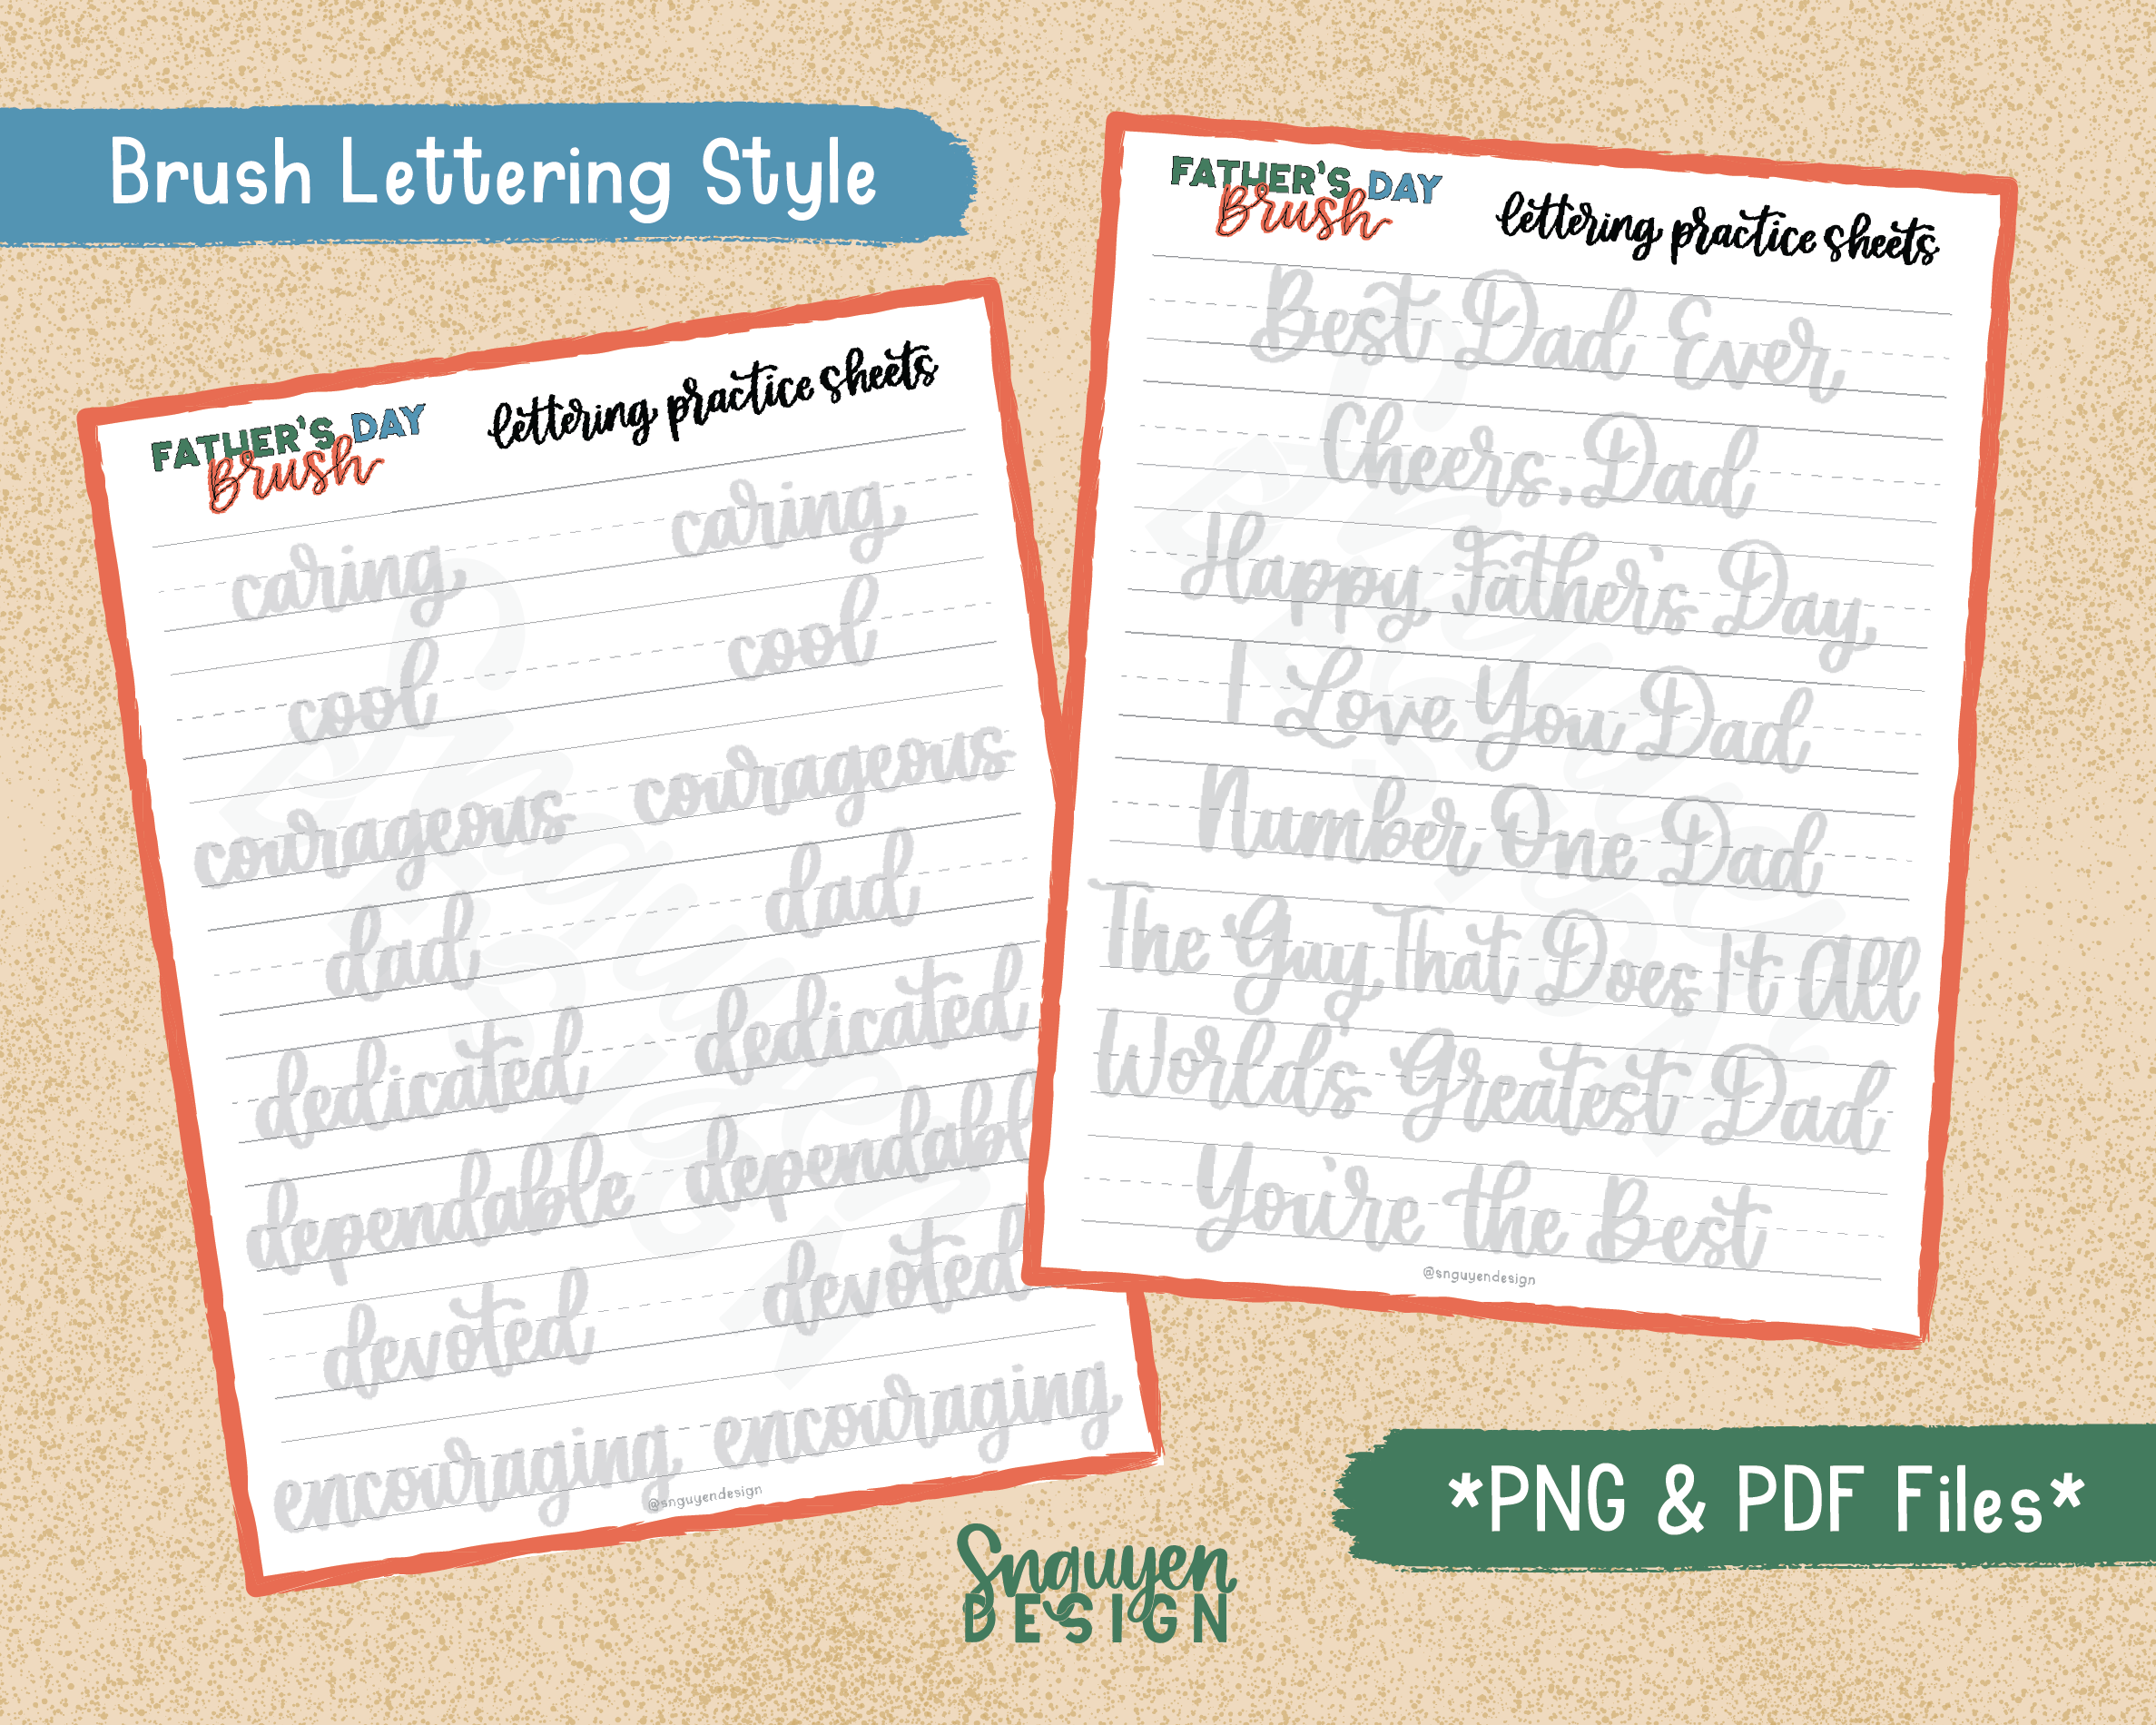 Brush Lettering Style
FATHER'S DAY
Brush
lettering practice sheets
caring caring
cool cool
courageous courageous
dad dad
dedicated dedicated
dependable dependabl
devoted devoted
encouraging encouraging
@snguyendesign
FATHER'S DAY
Brush
lettering practice sheets
Best Dad Ever
Cheers, Dad
Happy Father's Day
I Love You Dad
Number One Dad
The Guy That Does It All
World's Greatest Dad
You're the Best
@snguyendesign
*PNG & PDF Files*
Snguyen
DESIGN